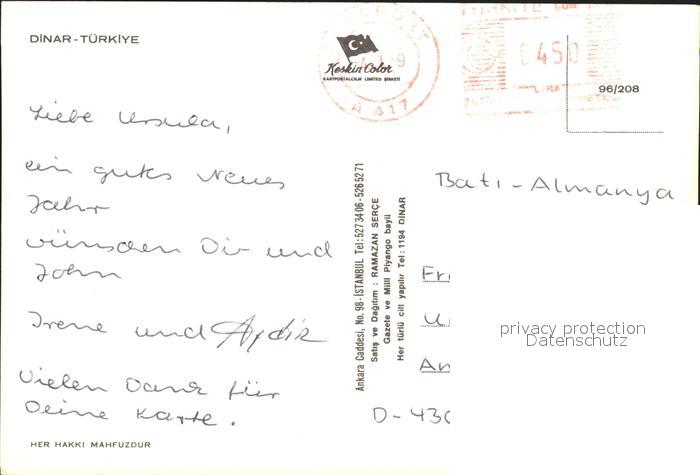 DİNAR-TÜRKİYE
Keskin Color
KARTPOSTALCILIK LIMITED ŞİRKETİ
A 417
TÜRKİYE
0450
LİRA
96/208
Liebe Ursula,
ein gutes Neues
Jahr
wünschen Dir und
John
Irene und Aydin
Vielen Dank für
Deine Karte.
HER HAKKI MAHFUZDUR
Ankara Caddesi, No. 98-İSTANBUL Tel:5273406-5265271
Satış ve Dağıtım : RAMAZAN SERÇE
Gazete ve Milli Piyango bayii
Her türlü cilt yapılır Tel:1194 DİNAR
Batı-Almanya
Fr
U
An
D-430
privacy protection
Datenschutz